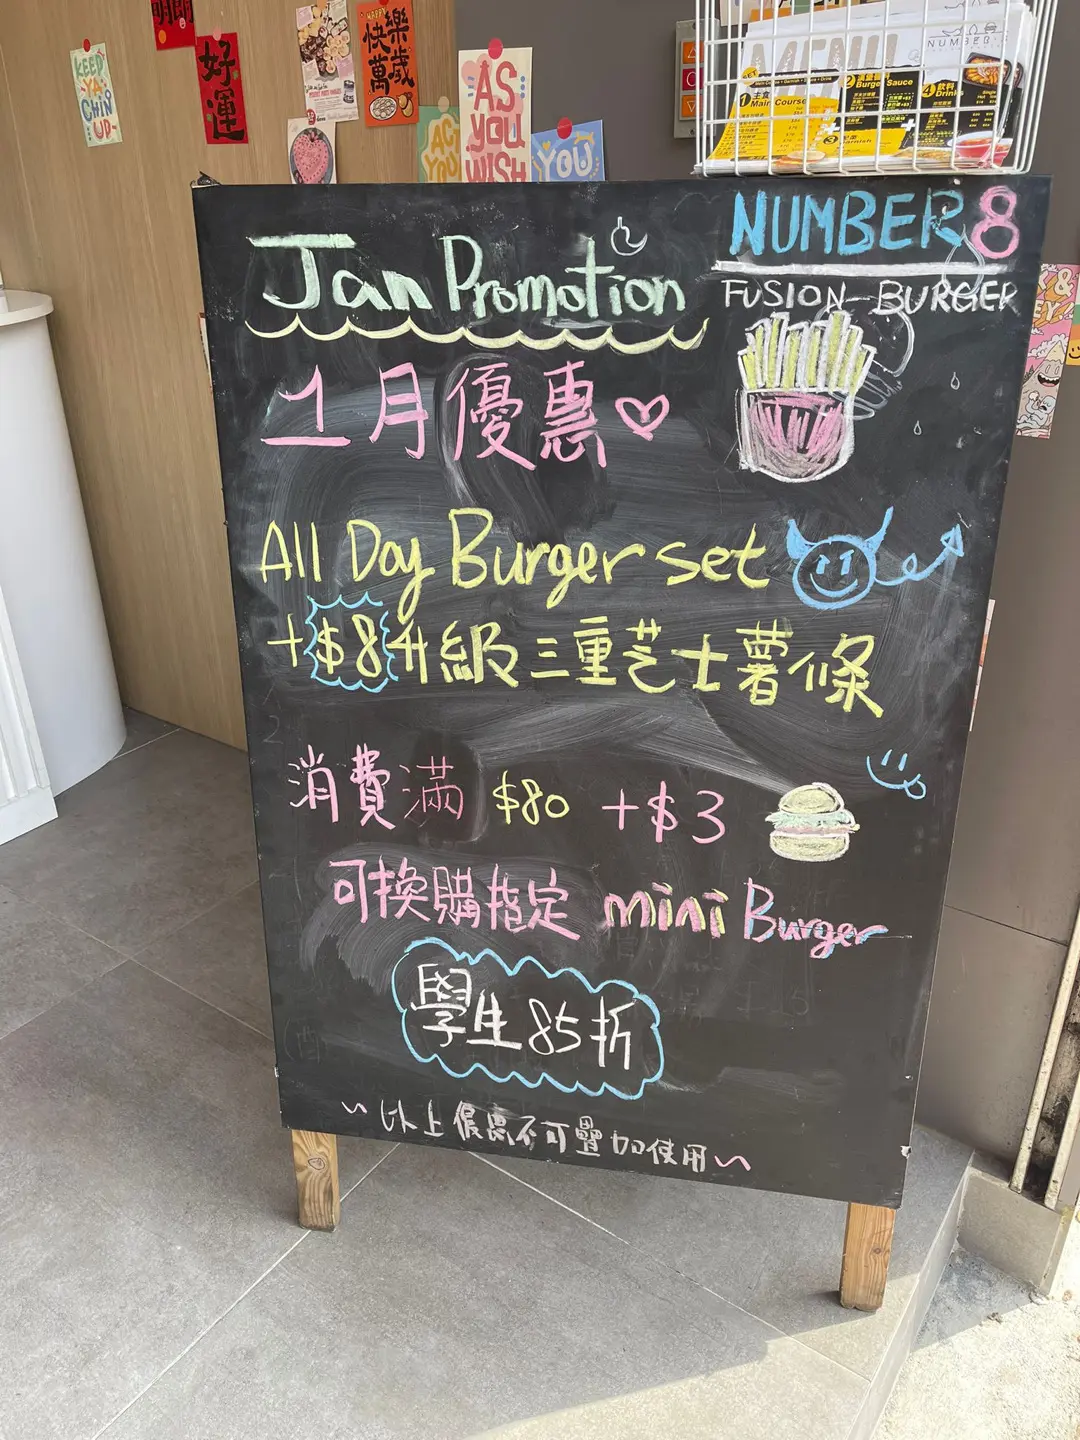 明朗
好運
KEEP
YA
CHIN
UP
HAPPY
快
樂
萬
歲
AS
YOU
WISH
ACT
YOU
YOU
MENU
NUMBER
1 主食
Main Course
2 漢堡醬料
Burger Sauce
3 配菜
Garnish
4 飲料
Drinks
NUMBER 8
FUSION BURGER
Jan Promotion
1月優惠
All Day Burger set
+$8升級三重芝士薯條
消費滿 $80 +$3
可換購指定 mini Burger
學生85折
~以上優惠不可疊加使用~